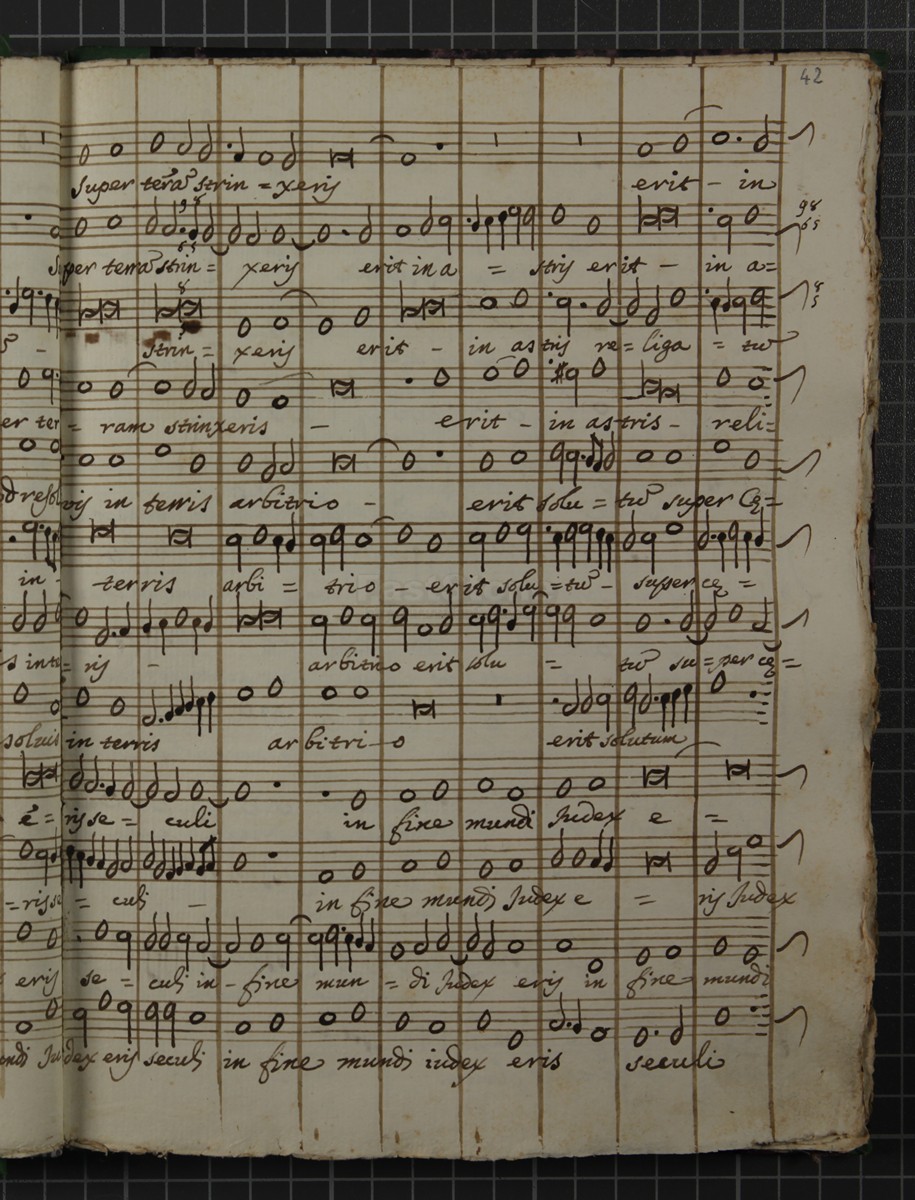 42
super terrã strin = xeris erit - in
98
super terrã strin = xeris erit in a = stris erit - in a=
strin = xeris erit - in astris re = liga = tũ
er ter = ram strinxeris - erit - in astris - reli=
vis in terris arbitrio - erit solu = tũ super cę =
in - terris arbi = trio - erit solu = tũ - super cę =
s inte = ris - arbitrio erit solu = tũ su = per cę =
soluis in terris arbitri - o erit solutum
e = ris se = culi in fine mundi Judex e =
= ris se = culi - in fine mundi Judex e = ris Judex
eris se = culi in - fine mun = di Judex eris in fine mundi
Judex eris seculi in fine mundi iudex eris seculi